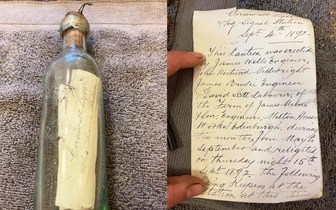 Signal Station
Sept 4th 1892.
This Lantern was erected
by James Wells Engineer,
John Westwood Millwright
James Brodie Engineer
David Scott Labourer, of
the Firm of James Milne
&Son, Engineers, Milton House
Works, Edinburgh, during
the months from May to
September and relighted
on Thursday night 15th
Sept 1892, the following
being Keepers at the
Station at this time